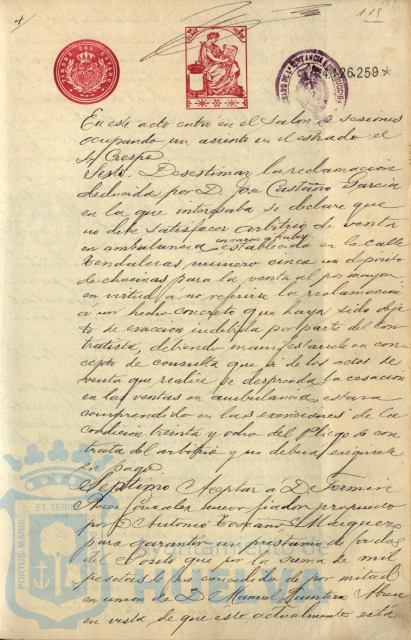 115
4.126.259*
En este acto entra en el Salon de sesiones
ocupando un asiento en el estrado el
Sr Crespo
Sexto. Desestimar la reclamacion
deducida por D. José Castaño Garcia
en la que interesaba se declare que
no debe satisfacer arbitrio de venta
en ambulancia establecido en la calle
Rendaleras numero cinco un deposito
de chacinas para la venta al por mayor
en virtud a no referirse la reclamación
á un hecho concreto que haya sido obje
to de exaccion indebida por parte del con
tratista, debiendo manifestarsele en con
cepto de consulta que si de los actos de
venta que realice se desprenda la cesación
en las ventas en ambulancia, estará
comprendido en las exenciones de la
condición treinta y ocho del Pliego de con
trata del arbitrio y no deberá exigirsele
su pago
Septimo Aceptar á D. Fermin
Gonzalez nuevo fiador propuesto
por D Antonio Toscano Marquez
para garantir un prestamo de fondos
de Posito que por la suma de mil
pesetas le fue concedido de por mitad
en union de D. Manuel Quintero
en vista de que este actualmente está
PORTUS MARIS
ET TERR
Ayuntamiento de
HUELVA